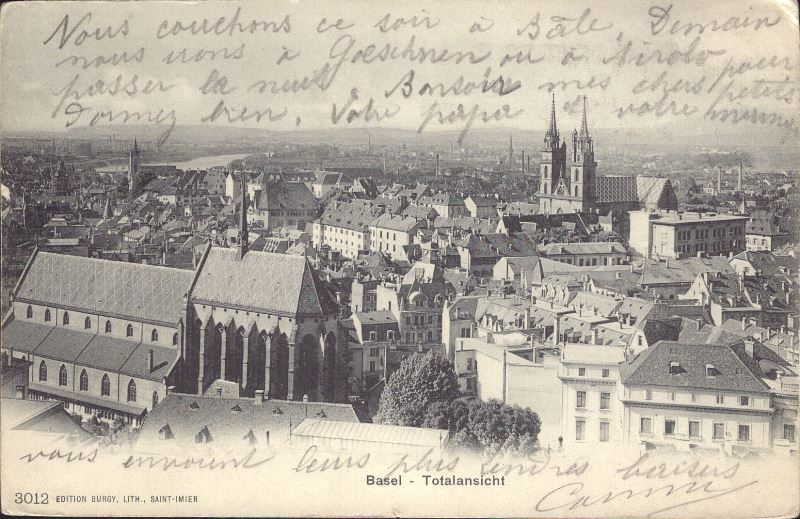 Nous couchons ce soir à Bâle, Demain
nous irons à Gœschnen ou à Airolo pour
passer la nuit. Bonsoir mes chers petits
Dormez bien, Votre papa et votre
vous envoient leurs plus tendres baisers
Basel - Totalansicht
3012 EDITION BURGY, LITH., SAINT-IMIER